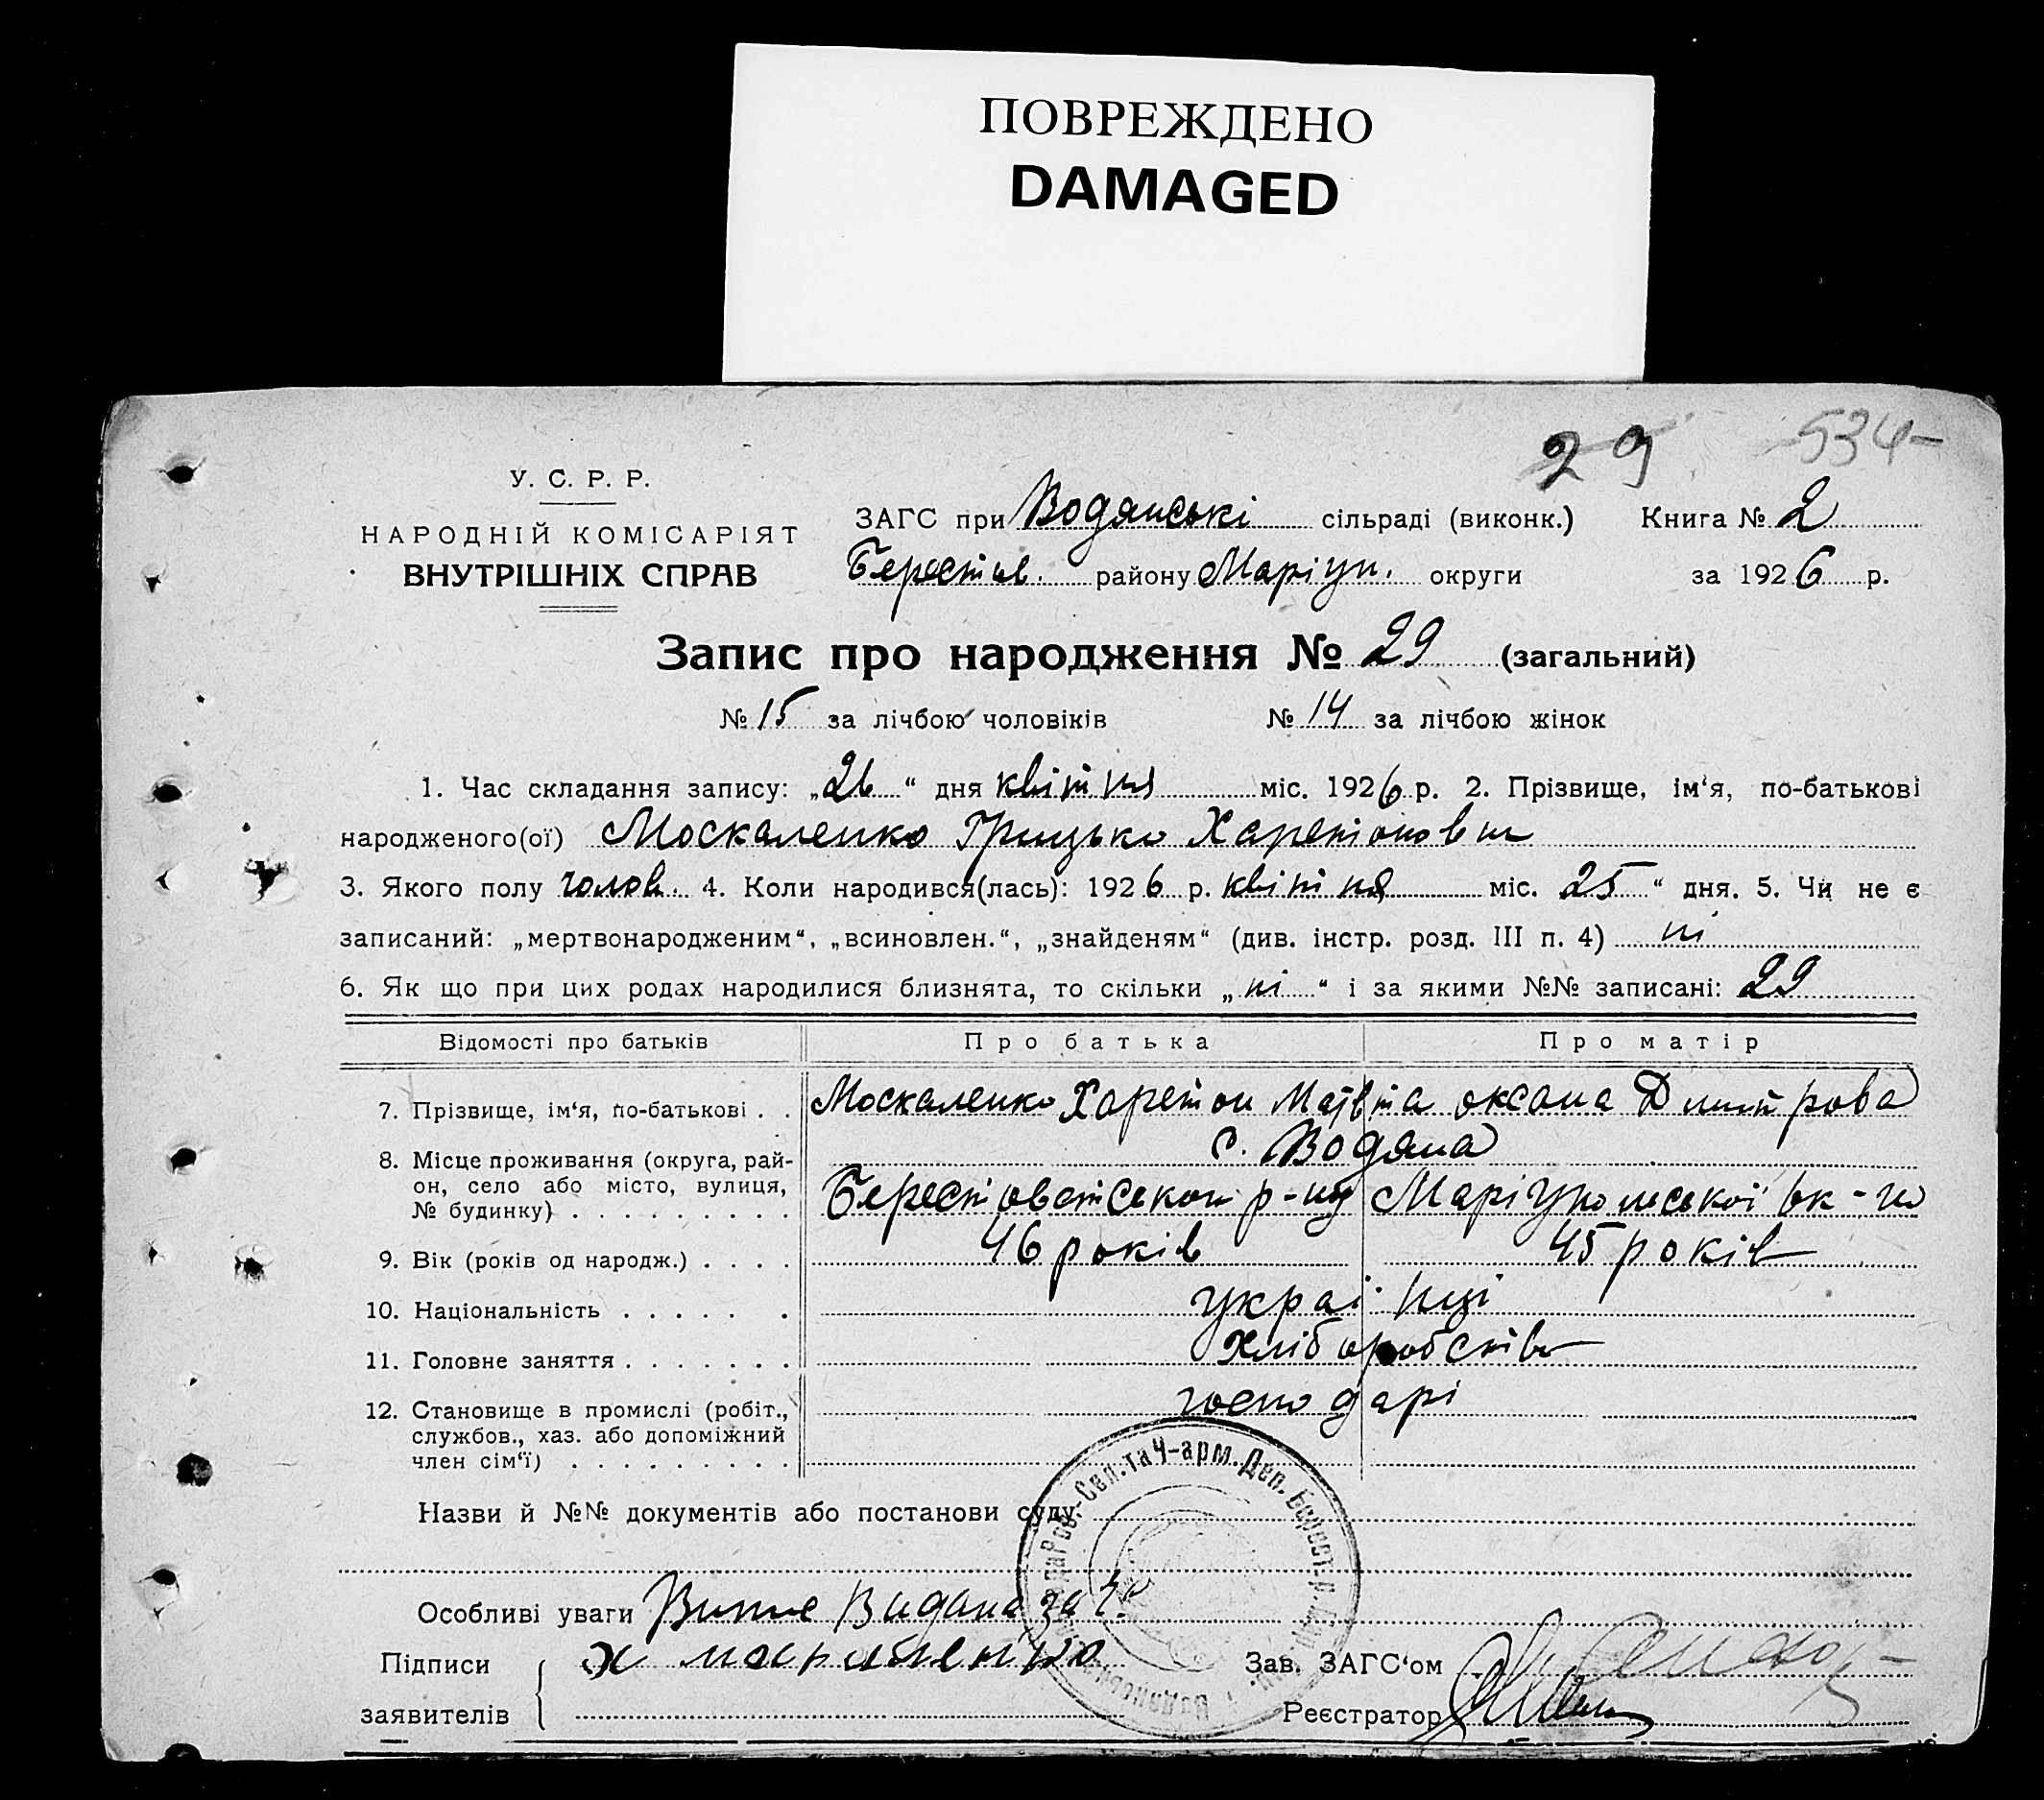 ПОВРЕЖДЕНО
DAMAGED
29 534-
У. С. Р. Р.
НАРОДНІЙ КОМІСАРІЯТ
ВНУТРІШНІХ СПРАВ
ЗАГС при Водянські сільраді (виконк.) Книга № 2
Берестов. району Маріуп. округи за 1926 р.
Запис про народження № 29 (загальний)
№ 15 за лічбою чоловіків № 14 за лічбою жінок
1. Час складання запису: „26“ дня квітня міс. 1926 р. 2. Прізвище, ім‘я, по-батькові
народженого(ої) Москаленко Грицько Харетіонови
3. Якого полу чолов. 4. Коли народився(лась): 1926 р. квітня міс. 25“ дня. 5. Чи не є
записаний: „мертвонародженим“, „всиновлен.“, „знайденям“ (див. інстр. розд. III п. 4) ні
6. Як що при цих родах народилися близнята, то скільки „ні“ і за якими №№ записані: 29
Відомості про батьків Про батька Про матір
7. Прізвище, ім‘я, по-батькові . . Москаленко Харетон оксана Дмитрова
с. Водяна
8. Місце проживання (округа, рай-
он, село або місто, вулиця,
№ будинку) . . . . . . . . . р-ну Маріупольської ок-и
9. Вік (років од народж.) . . . . 46 років 45 років
10. Національність . . . . . . українці
11. Головне заняття . . . . . . .
12. Становище в промислі (робіт., господарі
службов., хаз. або допоміжний
член сім‘ї) . . . . . . . . .
Назви й №№ документів або постанови суду
Рад. Роб.-Сел. та Ч-арм. Деп. Берест. р.
Особливі уваги Видана за
Підписи Зав. ЗАГС‘ом
заявителів Реєстратор